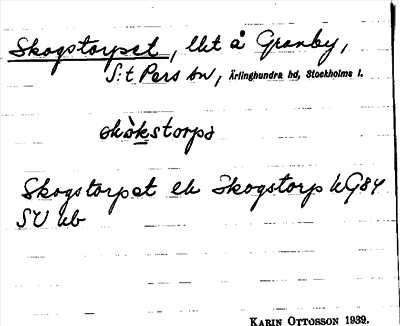 Skogstorpet, lht å Granby,
S:t Pers sn, Ärlinghundra hd, Stockholms l.
skòkstorps
Skogstorpet el. Skogstorp
SV ub
KARIN OTTOSSON 1939.